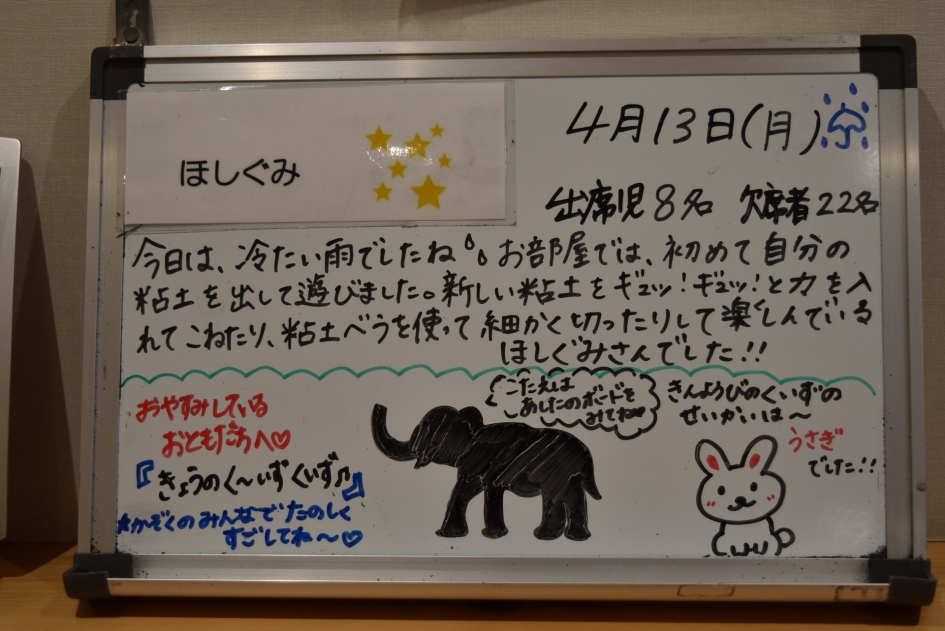 ほしぐみ
4月13日(月)
出席児8名 欠席者22名
今日は、冷たい雨でしたね。お部屋では、初めて自分の
粘土を出して遊びました。新しい粘土をギュッ!ギュッ!と力を入
れてこねたり、粘土べらを使って細かく切ったりして楽しんでいる
ほしぐみさんでした!!
おやすみしている
おともだちへ♡
『きょうのく〜いずくいず♪』
★かぞくのみんなでたのしく
すごしてね〜♡
こたえは
あしたのボードを
みてね♥
きんようびのくいずの
せいかいは〜
うさぎ
でした!!